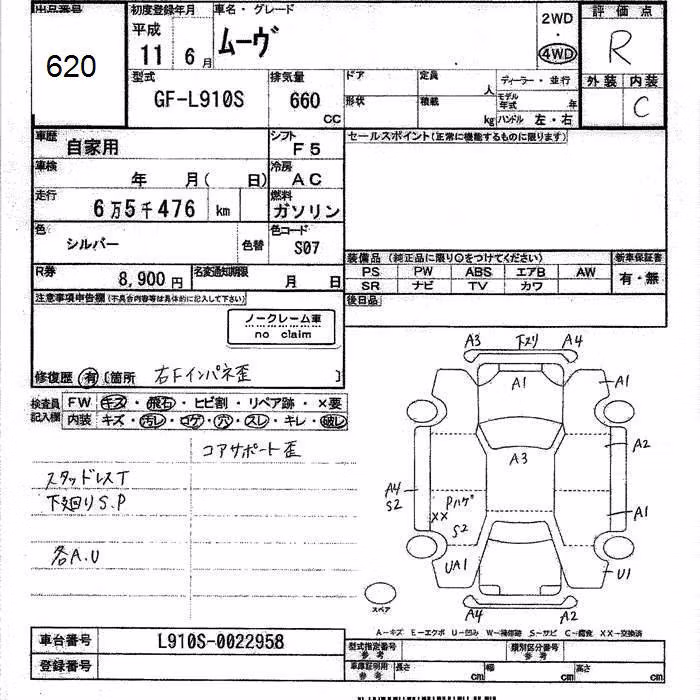 出品番号 初度登録年月 車名・グレード 2WD 評価点
620 平成 11 6月 ムーヴ ・ 4WD R
型式 排気量 ドア 定員 人 ディーラー・並行 外装 内装
GF-L910S 660 CC 形状 積載 kg モデル年式 年 C
ハンドル 左・右
車歴 自家用 シフト F5 セールスポイント(正常に機能するものに限ります)
車検 年 月( 日) 冷房 AC
走行 6万5千476 km 燃料 ガソリン
色 シルバー 色替 色コード S07
装備品(純正品に限り○をつけてください) 新車保証書
R券 8,900円 名変通知期限 月 日 PS PW ABS エアB AW 有・無
SR ナビ TV カワ
注意事項申告欄(不具合内容等は具体的に記入して下さい) 後日品
ノークレーム車
no claim
修復歴 有 〔箇所 右Fインパネ歪 〕
検査員記入欄 FW キズ・飛石・ヒビ割・リペア跡・×要
内装 キズ・汚レ・コゲ・穴・スレ・キレ・破レ
コアサポート歪
スタッドレスT
下廻りS.P
各A.U
A3 下スリ A4
A1 A1
A3 A2
A4 S2 Pハゲ XX S2 A1
UA1 U1
スペア A4 A2
A-キズ E-エクボ U-凹み W-補修跡 S-サビ C-腐食 XX-交換済
車台番号 L910S-0022958 型式指定番号 参考 類別区分番号 参考
登録番号 車庫証明用 参考 長さ cm 幅 cm 高さ cm